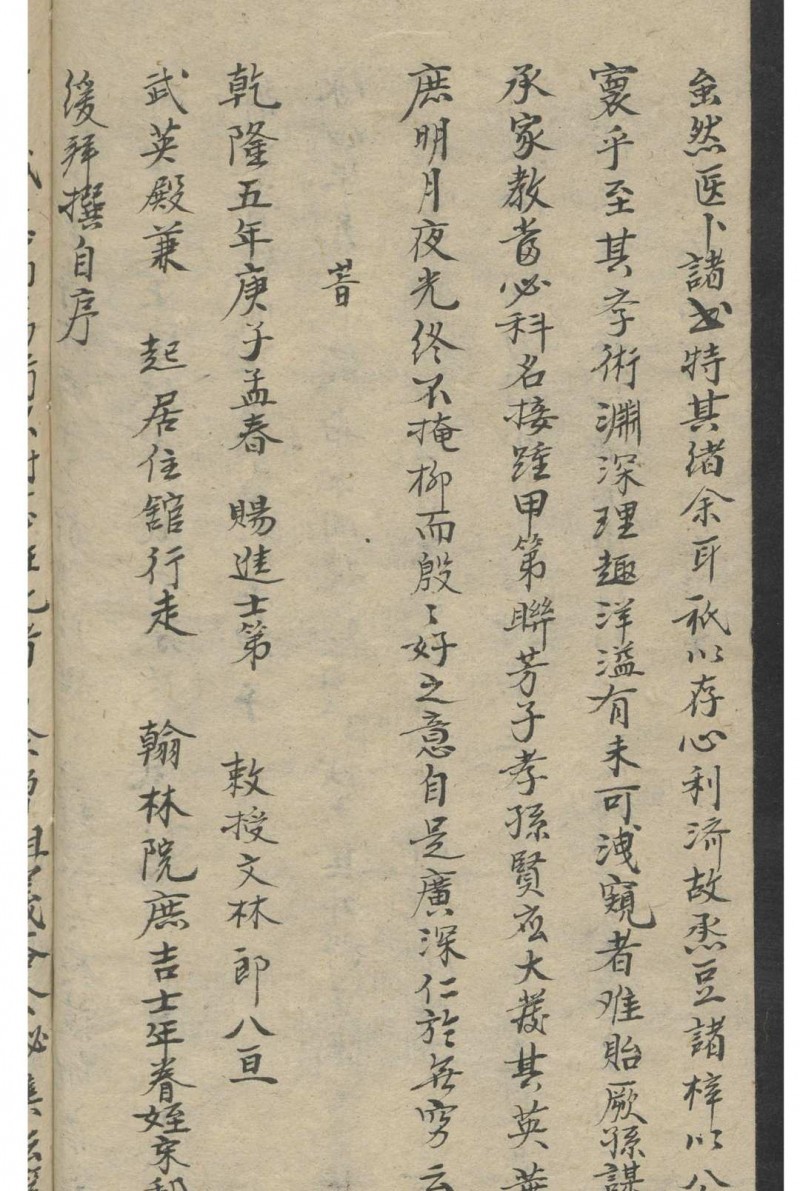 虽然医卜諸书特其緒余耳祇以存心利济故悉豆諸梓以公
寰乎至其孝術淵深理趣洋溢有未可洩窺者难貽厥孫謀
承家教當必科名接踵甲第聯芳子孝孫賢应大發其英華
庶明月夜光终不掩柳而殷〻好之意自是廣深仁於無穷云
旹
乾隆五年庚子孟春　賜進士第　敕授文林郎八亘
武英殿兼　起居住舘行走　翰林院庶吉士年眷姪宋
缓拜撰自序